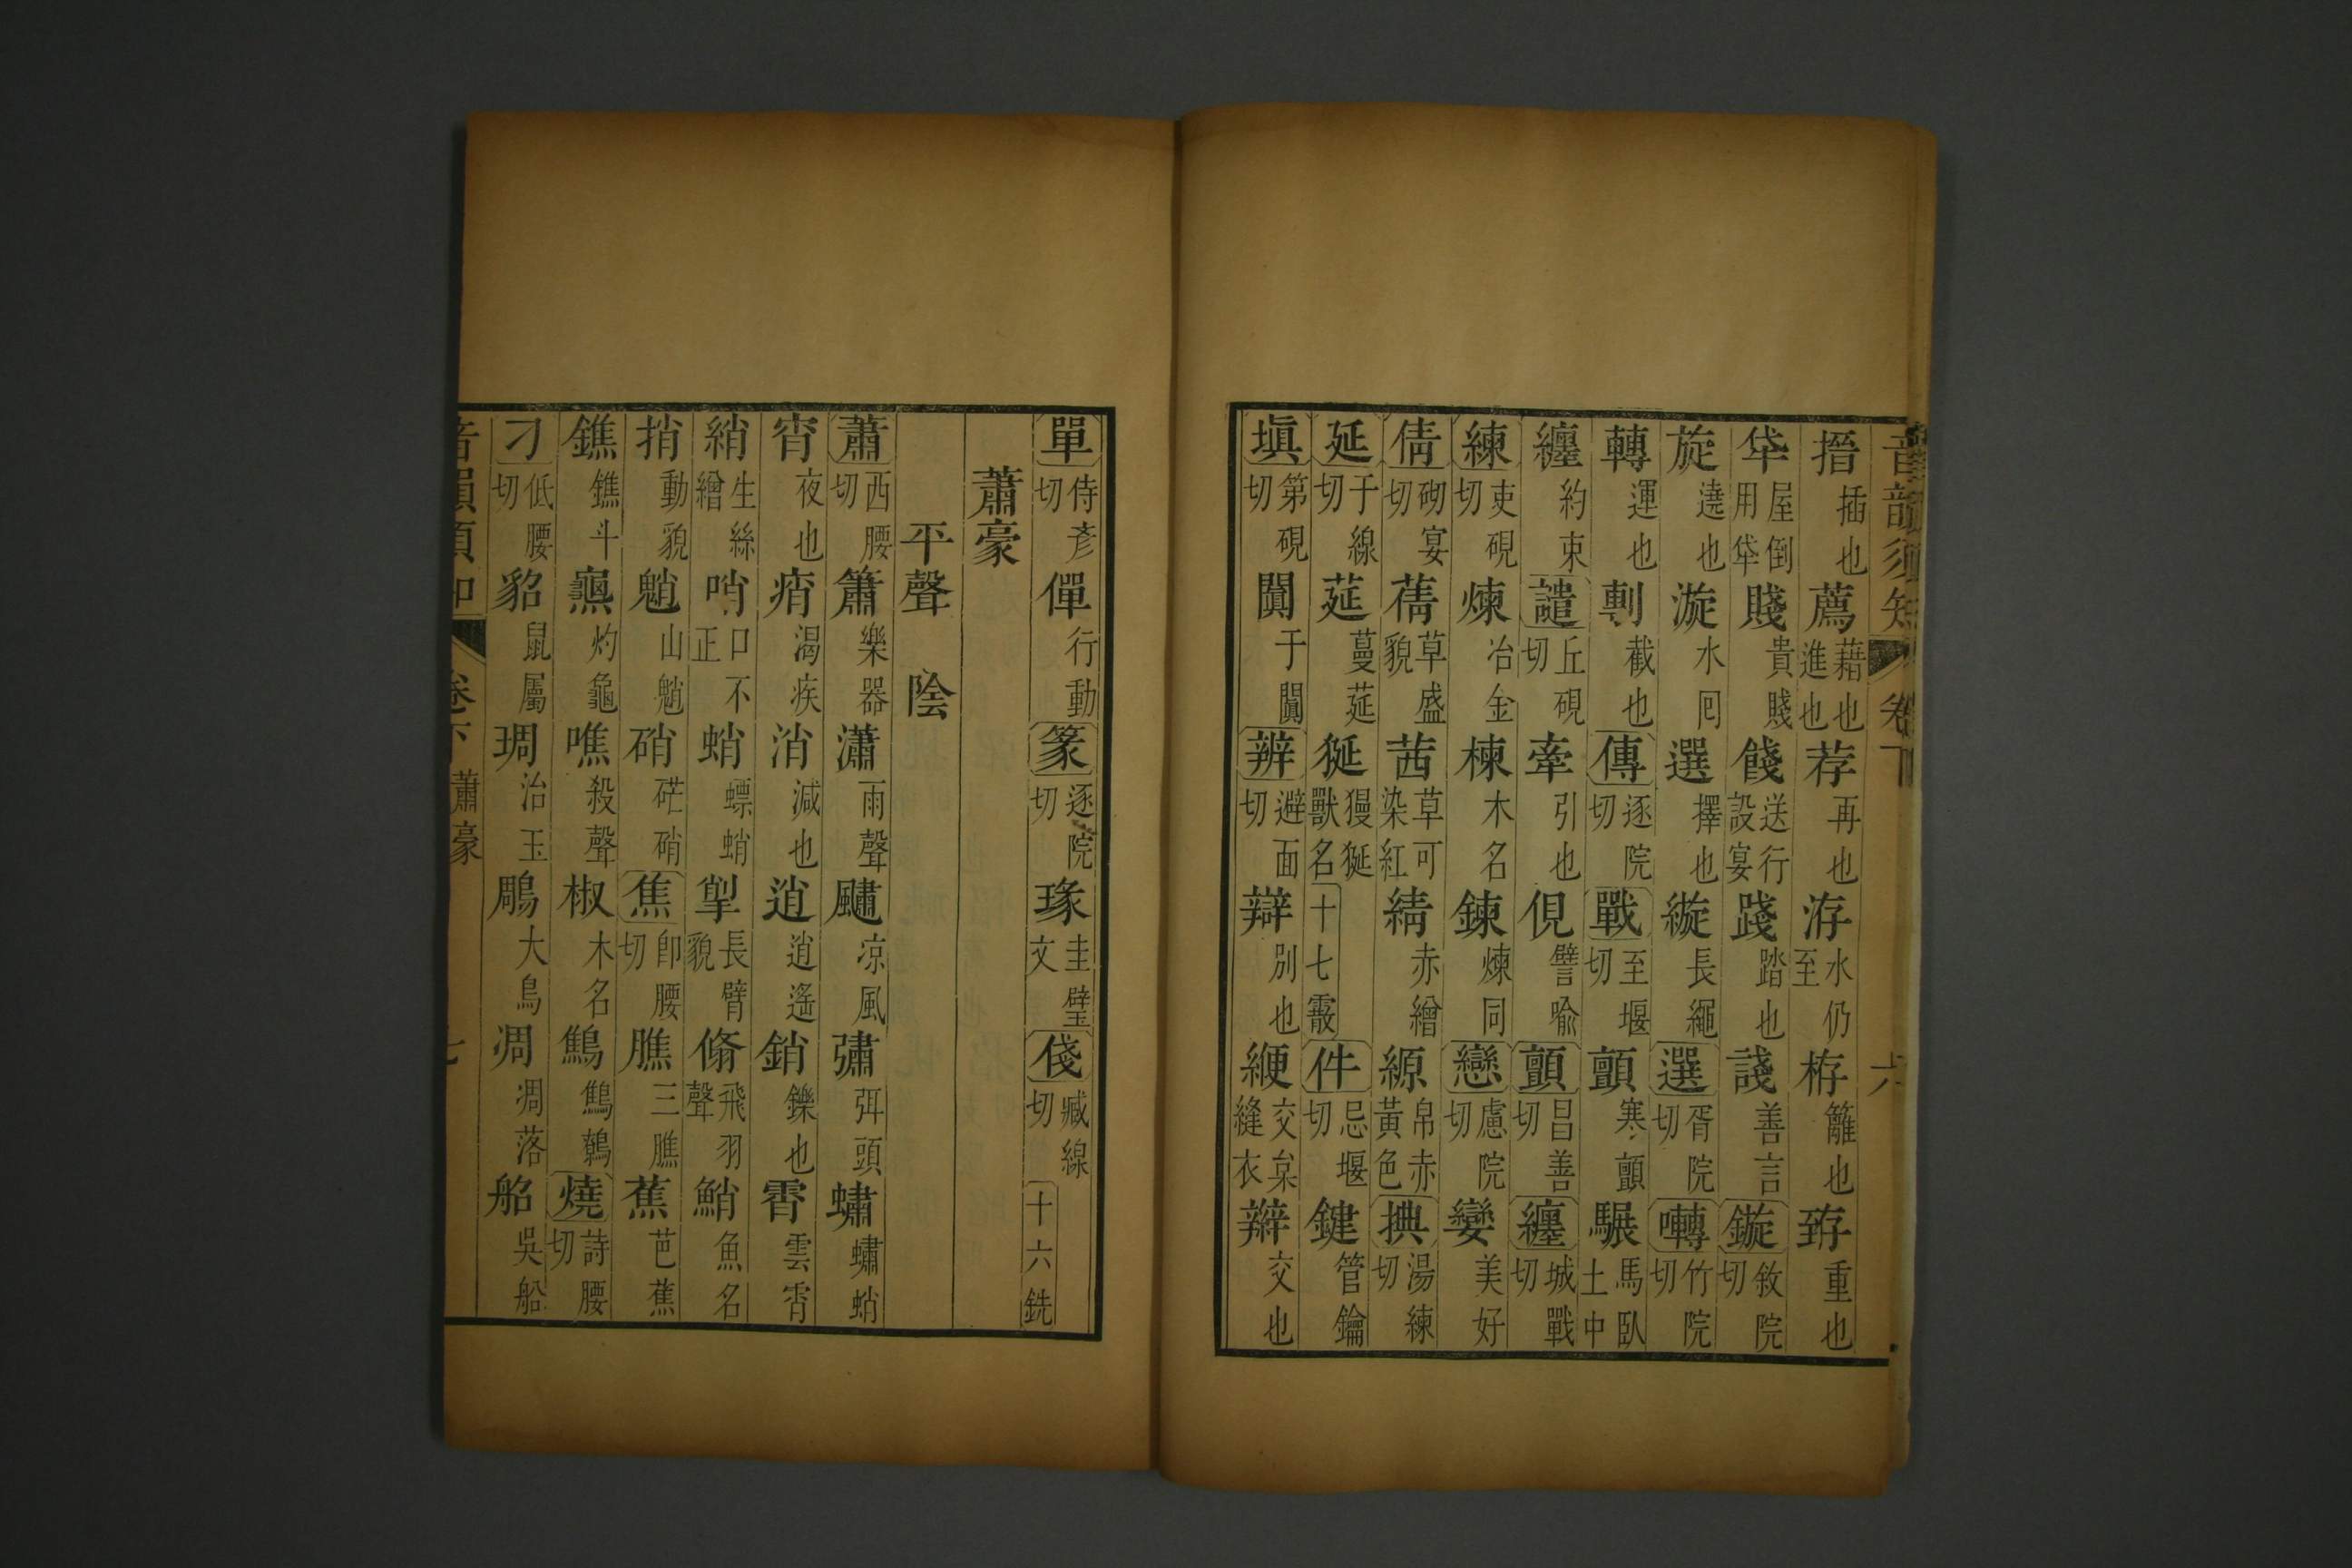 音韻須知 卷下 六
搢插也薦藉也進也荐再也洊水仍至栫籬也臶重也
屋倒用牮賤貴賤餞送行設宴踐踏也諓善言鏇敘院切
旋遶也漩水囘選擇也縼長繩選胥院切囀竹院切
轉運也剸截也傳逐院切戰至堰切顫寒顫驏馬臥土中
纏約束譴丘硯切牽引也俔譬喻顫昌善切纏城戰切
練吏硯切煉冶金楝木名鍊煉同戀慮院切孌美好
倩砌宴切蒨草盛貌茜草可染紅綪赤繒縓帛赤黃色㥏湯練切
延于線切莚蔓莚狿獌狿獸名十七霰件忌堰切鍵管鑰
塡第硯切闐于闐辨避面切辯別也緶交枲縫衣辮交也
單侍彥切僤行動篆逐院切瑑圭璧文俴臧線切十六銑
蕭豪
平聲 陰
蕭西腰切簫樂器瀟雨聲飀凉風彇弭頭蟰蟰蛸
宵夜也痟渴疾消減也逍逍遙銷鑠也霄雲霄
綃生絲繒哨口不正蛸螵蛸揱長臂貌翛飛羽聲鮹魚名
捎動貌魈山魈硝硭硝焦卽腰切膲三膲蕉芭蕉
鐎鐎斗灼龜噍殺聲椒木名鷦鷦鷯燒詩腰切
刁低腰切貂鼠屬琱治玉鵰大鳥凋凋落船吳船
音韻須知 卷下 蕭豪 七